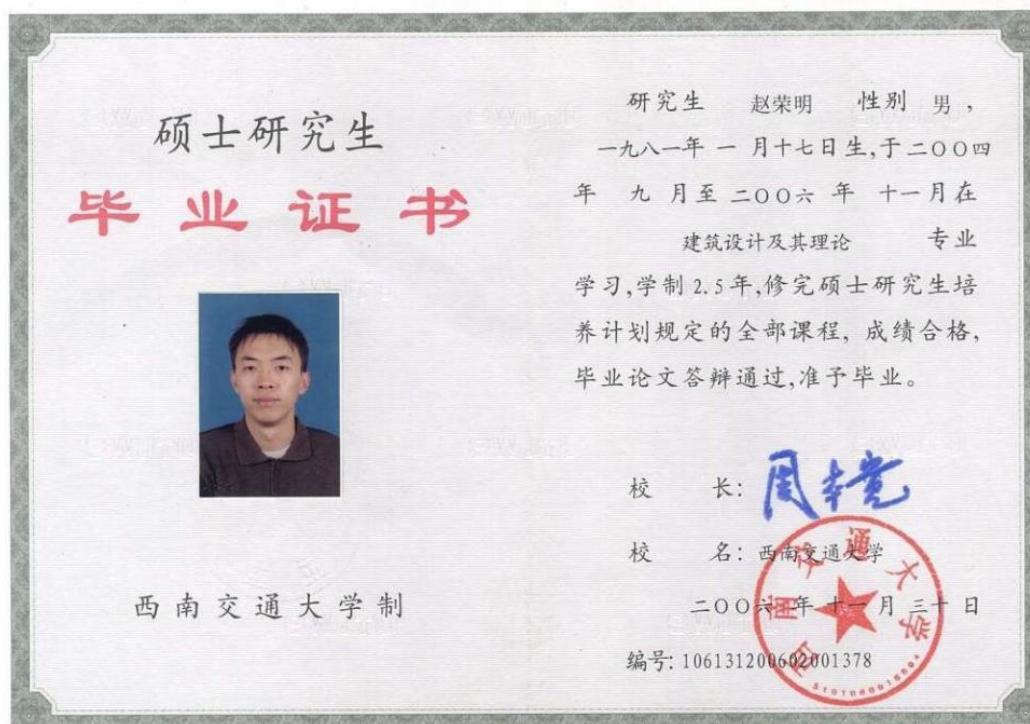 硕士研究生
毕业证书
西南交通大学制
研究生 赵荣明 性别 男,
一九八一年 一 月十七日生,于二〇〇四
年 九 月至 二〇〇六 年 十一月在
建筑设计及其理论 专业
学习,学制 2.5 年,修完硕士研究生培
养计划规定的全部课程, 成绩合格,
毕业论文答辩通过,准予毕业。
校 长:
校 名: 西南交通大学
二〇〇六 年 十一 月 三十 日
编号: 106131200602001378
西南交通大学